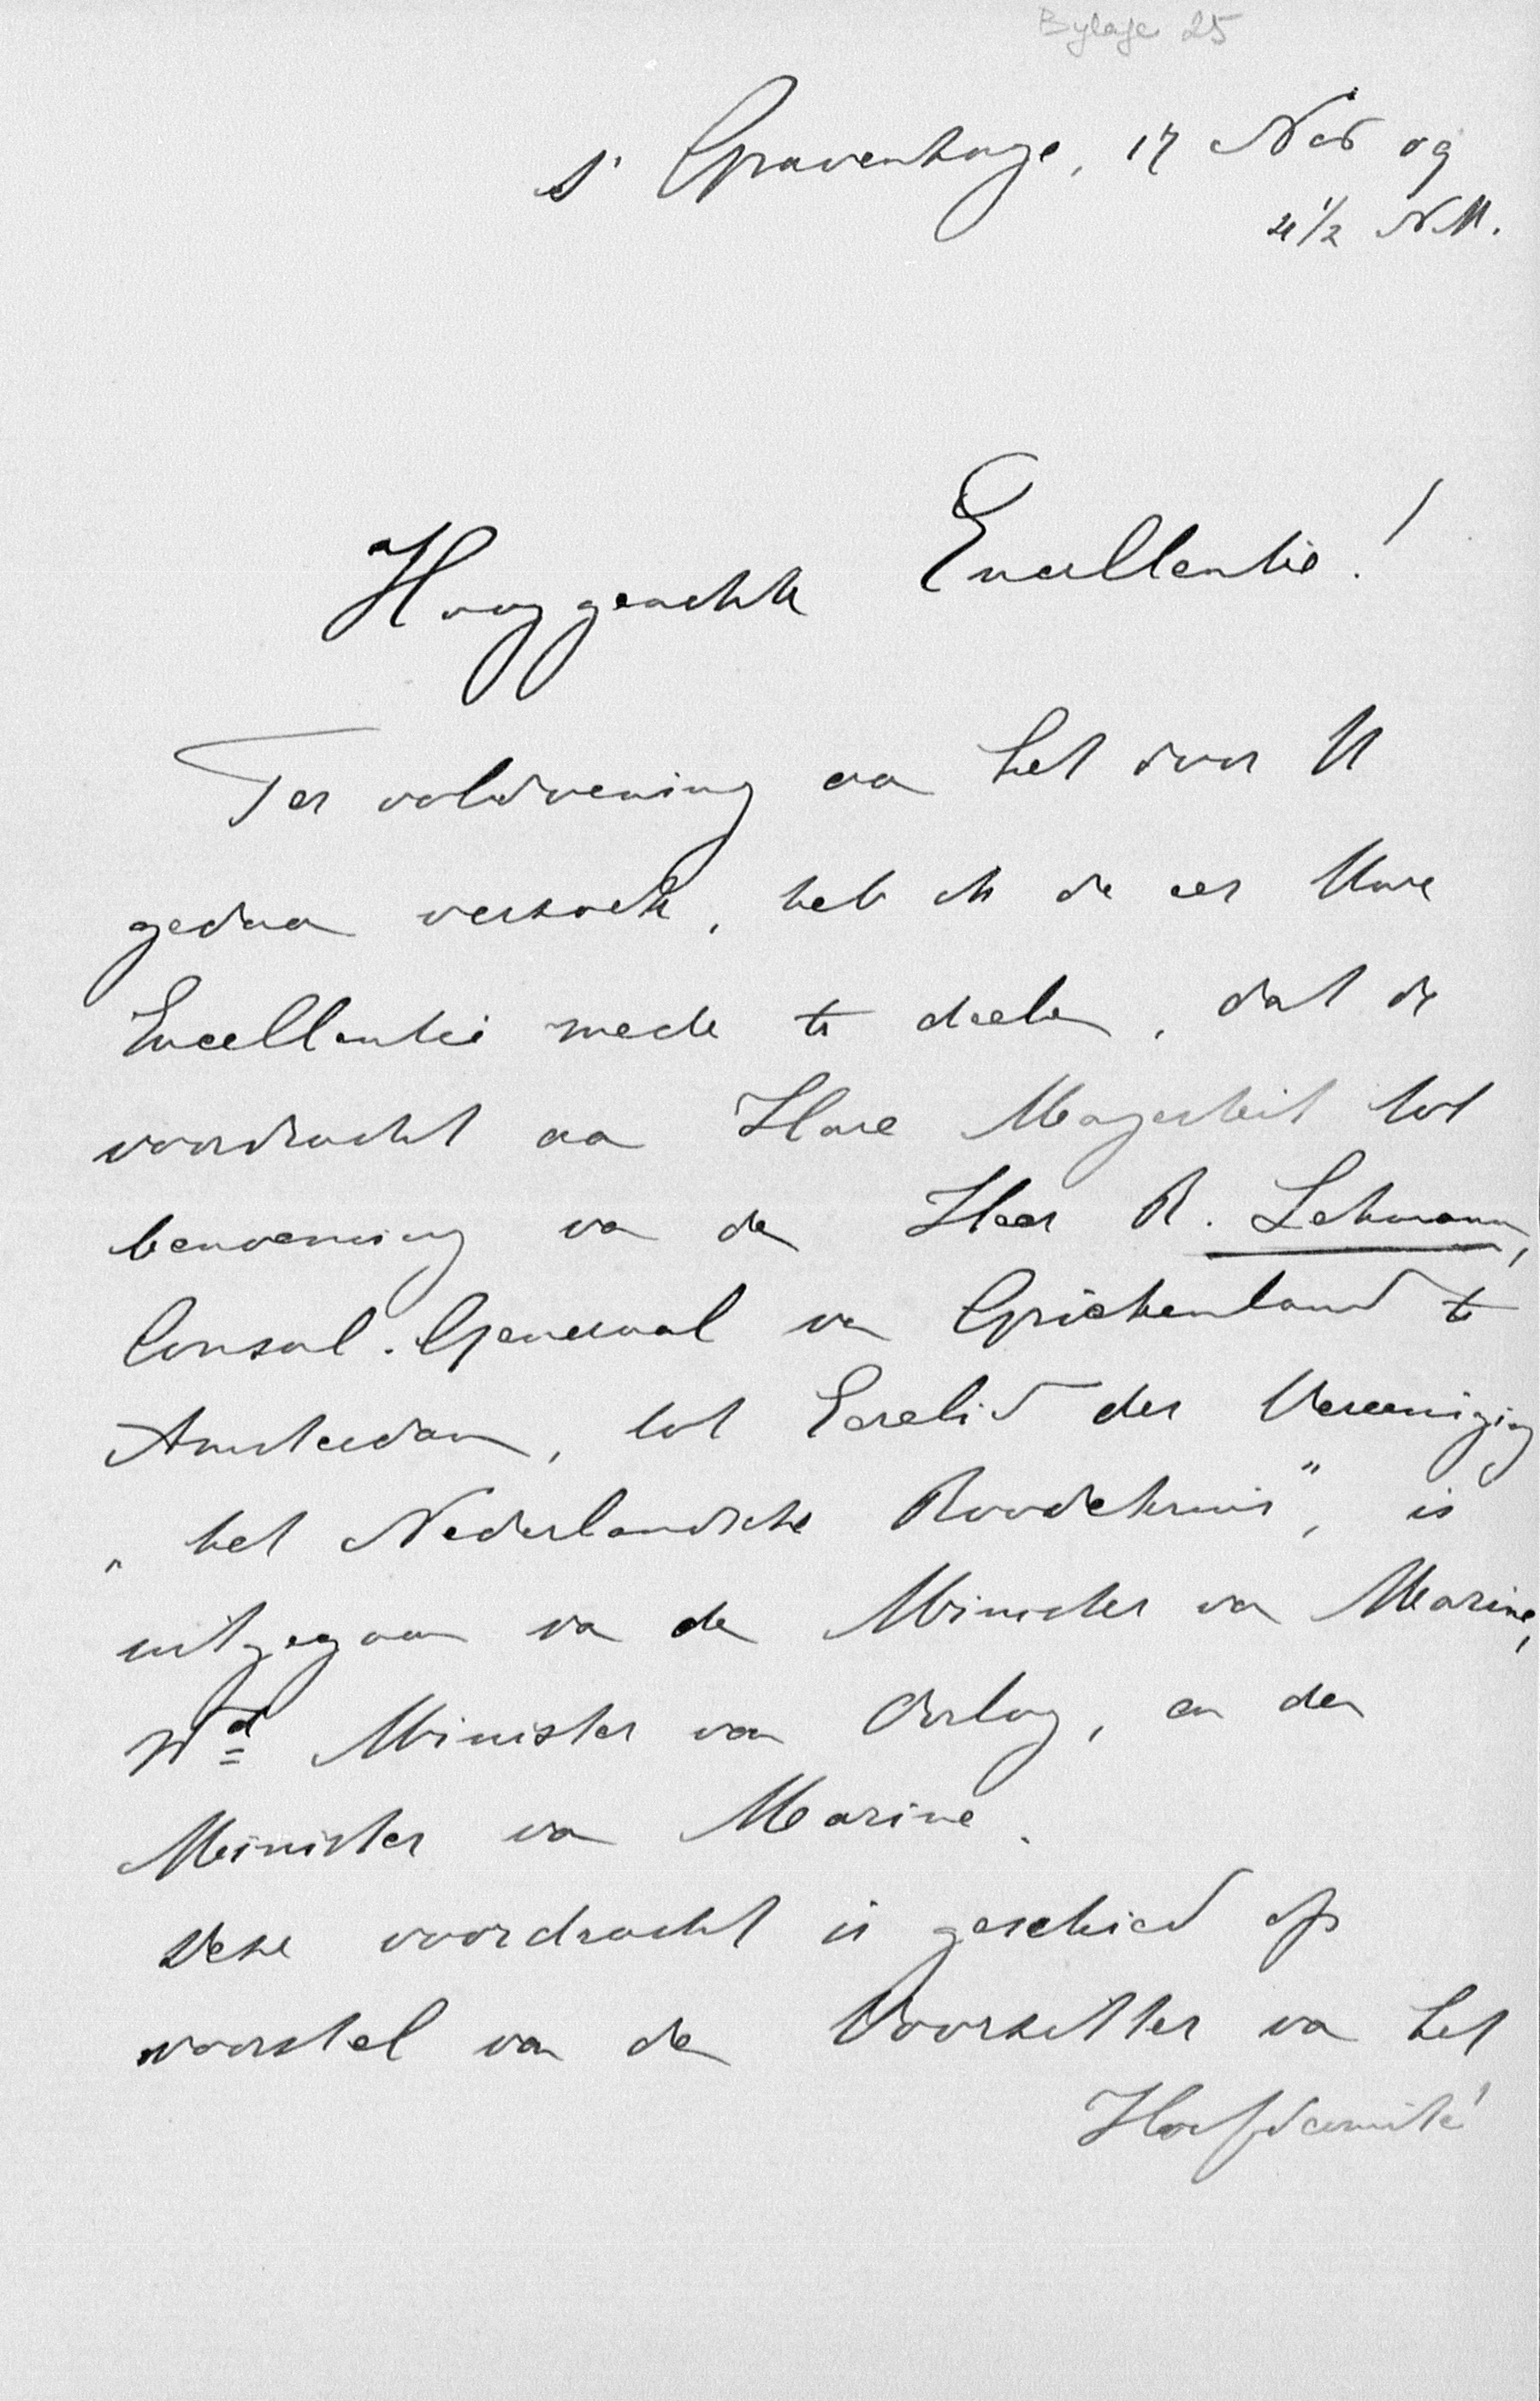 Bylage 25
s' Gravenhage, 17 Nov 09
4 1/2 NM.
Hooggeachte Excellentie!
Ter voldoening aan het door U
gedaan verzoek, heb ik de eer Uwe
Excellentie mede te deelen, dat de
voordracht aan Hare Majesteit tot
benoeming van den Heer R. Lehmann,
Consul-Generaal van Griekenland te
Amsterdam, tot Eerelid der Vereeniging
"het Nederlandsche Roodekruis", is
uitgegaan van den Minister van Marine,
Wd Minister van Oorlog, en den
Minister van Marine.
Deze voordracht is geschied op
voorstel van den Voorzitter van het
Hoofdcomité